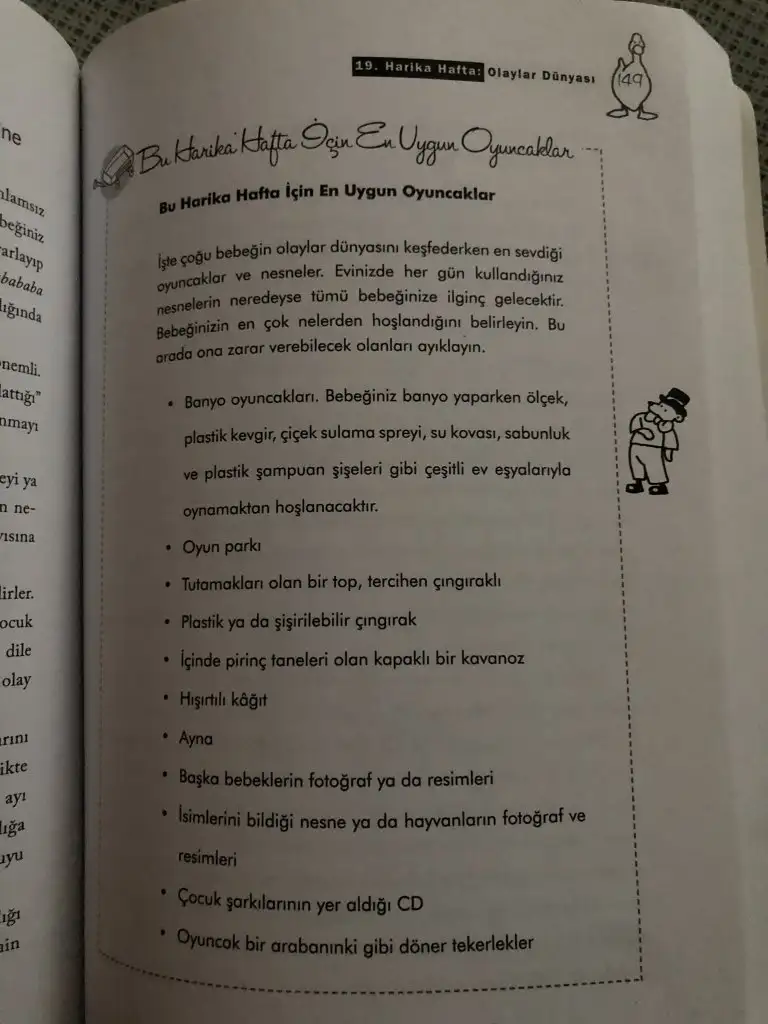 19. Harika Hafta: Olaylar Dünyası
149
Bu Harika Hafta İçin En Uygun Oyuncaklar
Bu Harika Hafta İçin En Uygun Oyuncaklar
İşte çoğu bebeğin olaylar dünyasını keşfederken en sevdiği
oyuncaklar ve nesneler. Evinizde her gün kullandığınız
nesnelerin neredeyse tümü bebeğinize ilginç gelecektir.
Bebeğinizin en çok nelerden hoşlandığını belirleyin. Bu
arada ona zarar verebilecek olanları ayıklayın.
• Banyo oyuncakları. Bebeğiniz banyo yaparken ölçek,
plastik kevgir, çiçek sulama spreyi, su kovası, sabunluk
ve plastik şampuan şişeleri gibi çeşitli ev eşyalarıyla
oynamaktan hoşlanacaktır.
• Oyun parkı
• Tutamakları olan bir top, tercihen çıngıraklı
• Plastik ya da şişirilebilir çıngırak
• İçinde pirinç taneleri olan kapaklı bir kavanoz
• Hışırtılı kâğıt
• Ayna
• Başka bebeklerin fotoğraf ya da resimleri
• İsimlerini bildiği nesne ya da hayvanların fotoğraf ve
resimleri
• Çocuk şarkılarının yer aldığı CD
• Oyuncak bir arabanınki gibi döner tekerlekler